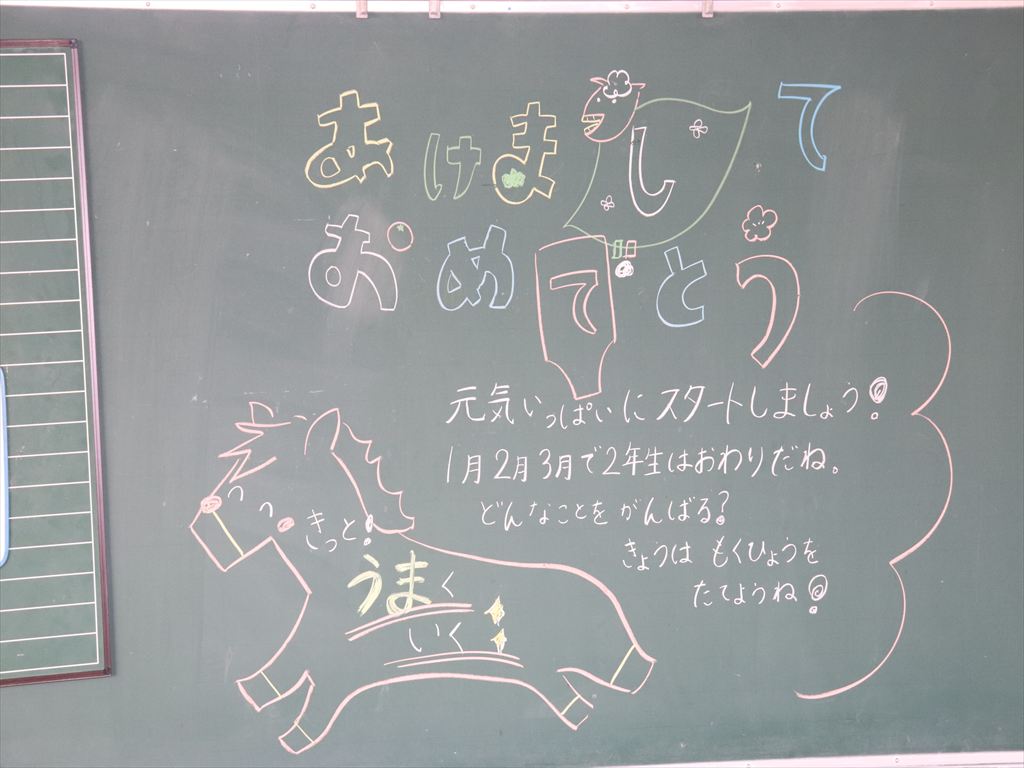 あけまして
おめでとう
元気いっぱいにスタートしましょう!
1月2月3月で2年生はおわりだね。
どんなことをがんばる?
きょうは もくひょうを
たてようね!
きっと!
うまく
いく!